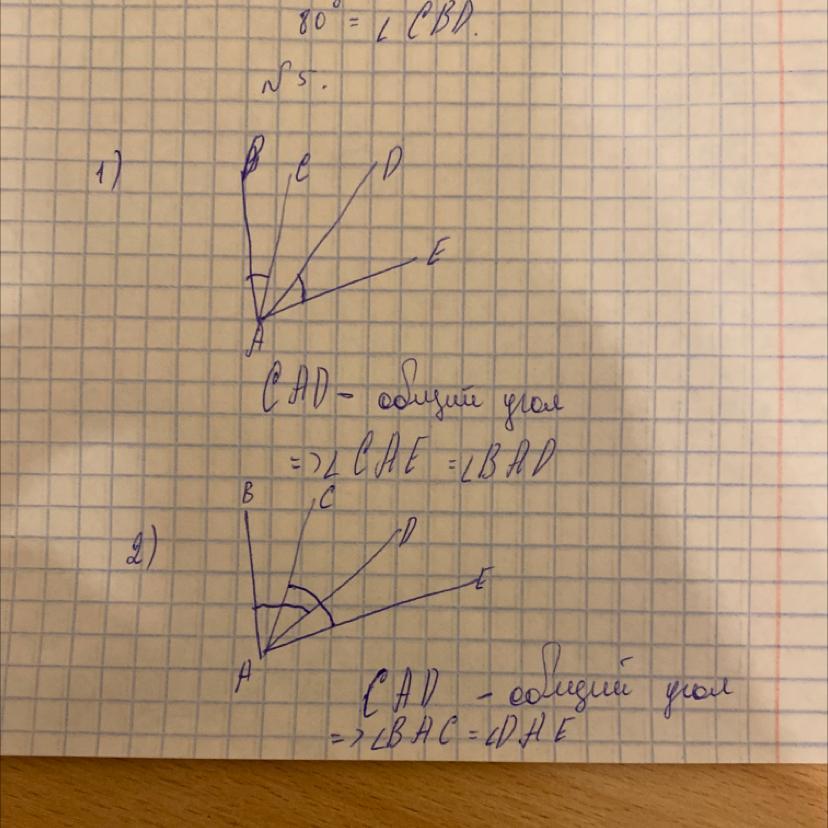 80° = ∠ CBD.
№ 5.
1)
B C D
E
A
CAD - общий угол
=> ∠CAE = ∠BAD
2)
B C
D
E
A
CAD - общий угол
=> ∠BAC = ∠DAE